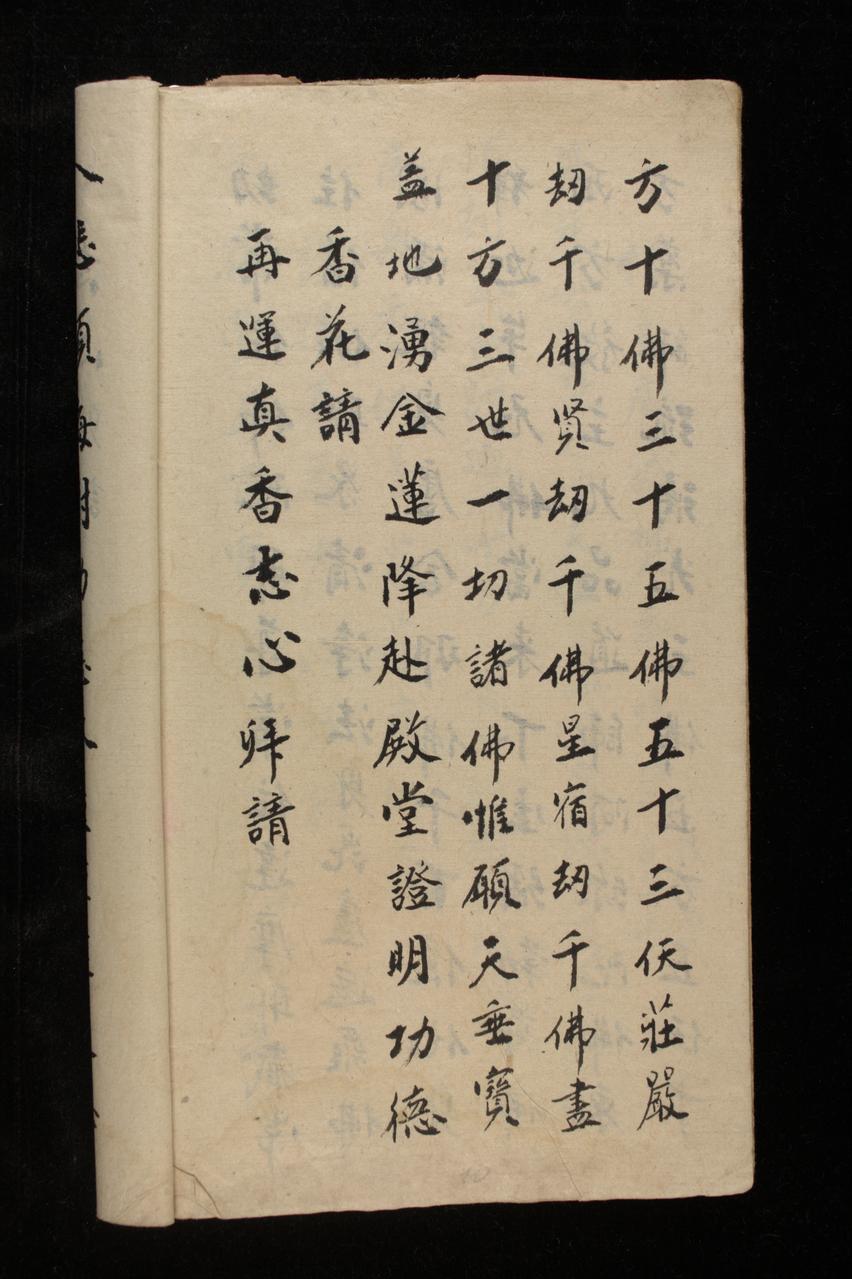 方十佛三十五佛五十三仸莊嚴
刼千佛賢刼千佛星宿刼千佛盡
十方三世一切諸佛惟願天垂寳
盖地湧金蓮降赴殿堂證明功德
香花請
再運真香志心拜請